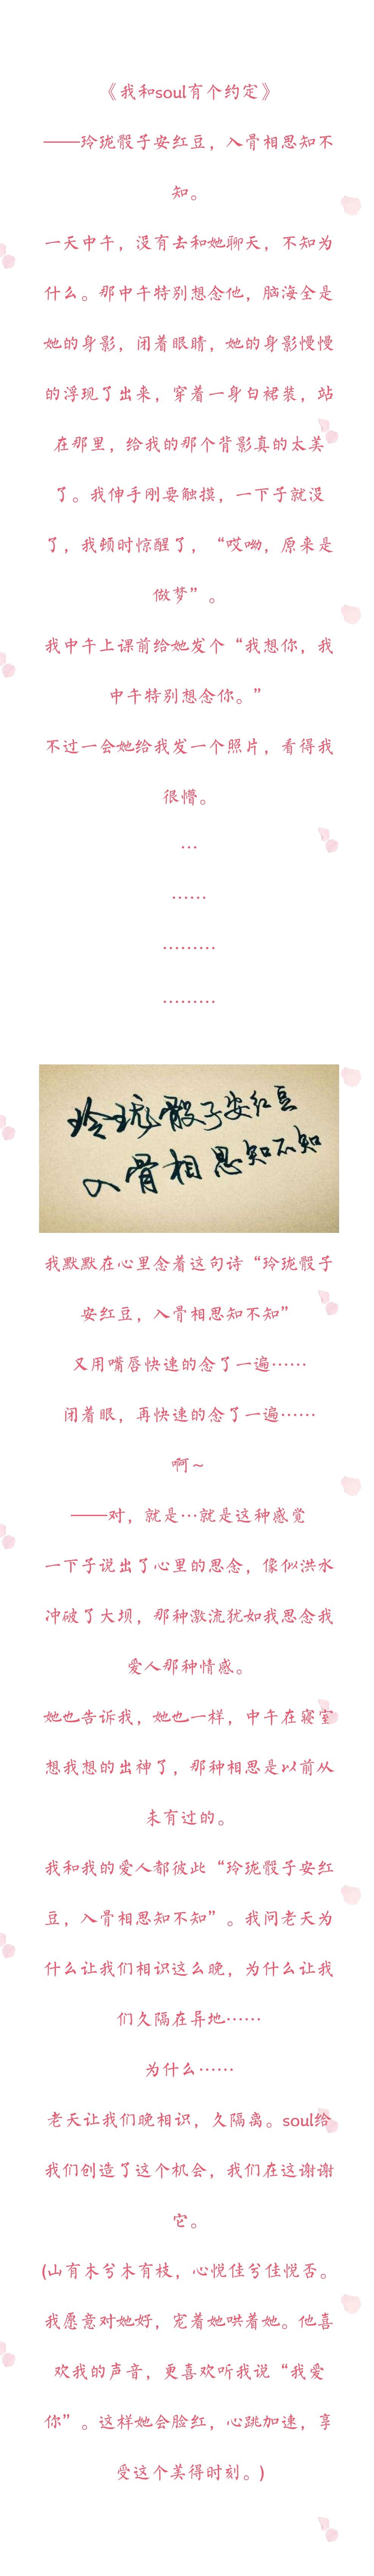 《我和soul有个约定》
——玲珑骰子安红豆，入骨相思知不
知。
一天中午，没有去和她聊天，不知为
什么。那中午特别想念他，脑海全是
她的身影，闭着眼睛，她的身影慢慢
的浮现了出来，穿着一身白裙装，站
在那里，给我的那个背影真的太美
了。我伸手刚要触摸，一下子就没
了，我顿时惊醒了，“哎呦，原来是
做梦”。
我中午上课前给她发个“我想你，我
中午特别想念你。”
不过一会她给我发一个照片，看得我
很懵。
…
……
………
………
玲珑骰子安红豆
入骨相思知不知
我默默在心里念着这句诗“玲珑骰子
安红豆，入骨相思知不知”
又用嘴唇快速的念了一遍……
闭着眼，再快速的念了一遍……
啊~
——对，就是…就是这种感觉
一下子说出了心里的思念，像似洪水
冲破了大坝，那种激流犹如我思念我
爱人那种情感。
她也告诉我，她也一样，中午在寝室
想我想的出神了，那种相思是以前从
未有过的。
我和我的爱人都彼此“玲珑骰子安红
豆，入骨相思知不知”。我问老天为
什么让我们相识这么晚，为什么让我
们久隔在异地……
为什么……
老天让我们晚相识，久隔离。soul给
我们创造了这个机会，我们在这谢谢
它。
(山有木兮木有枝，心悦佳兮佳悦否。
我愿意对她好，宠着她哄着她。他喜
欢我的声音，更喜欢听我说“我爱
你”。这样她会脸红，心跳加速，享
受这个美得时刻。)